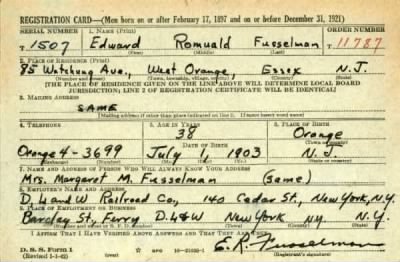 REGISTRATION CARD—(Men born on or after February 17, 1897 and on or before December 31, 1921)
SERIAL NUMBER 1. NAME (Print) ORDER NUMBER
T 1507 Edward Romuald Fusselman T 11787
(First) (Middle) (Last)
2. PLACE OF RESIDENCE (Print)
85 Watchung Ave., West Orange, Essex N.J.
(Number and street) (Town, township, village, or city) (County) (State)
[THE PLACE OF RESIDENCE GIVEN ON THE LINE ABOVE WILL DETERMINE LOCAL BOARD
JURISDICTION; LINE 2 OF REGISTRATION CERTIFICATE WILL BE IDENTICAL]
3. MAILING ADDRESS
SAME
[Mailing address if other than place indicated on line 2. If same insert word same]
4. TELEPHONE 5. AGE IN YEARS 6. PLACE OF BIRTH
38 Orange
DATE OF BIRTH (Town or county)
Orange 4-3699 July 1, 1903 N.J.
7. NAME AND ADDRESS OF PERSON WHO WILL ALWAYS KNOW YOUR ADDRESS
Mrs. Margaret M. Fusselman (same)
8. EMPLOYER'S NAME AND ADDRESS
D. L and W Railroad Co., 140 Cedar St., New York, N.Y.
9. PLACE OF EMPLOYMENT OR BUSINESS
Barclay St., Ferry D L & W New York NY. N.Y.
I AFFIRM THAT I HAVE VERIFIED ABOVE ANSWERS AND THAT THEY ARE TRUE.
D. S. S. Form 1
(Revised 1-1-42) E. R. Fusselman
(Registrant's signature)